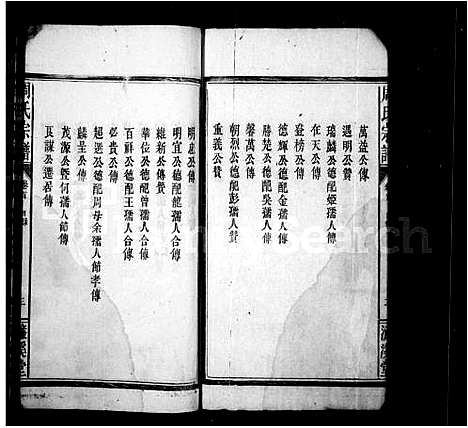 周氏宗譜
萬益公傳
遇明公贊
瑞麟公德配姬孺人傳
在天公傳
登榜公傳
德輝公德配金孺人傳
勝楚公德配吳孺人傳
馨萬公傳
朝烈公德配彭孺人贊
重義公贊
明宜公德配龍孺人合傳
維新公傳贊
華位公德配曾孺人合傳
百祥公德配王孺人合傳
必貴公傳
超選公德配周母余孺人節孝傳
麟呈公傳
茂源公暨何孺人節傳
周氏宗譜